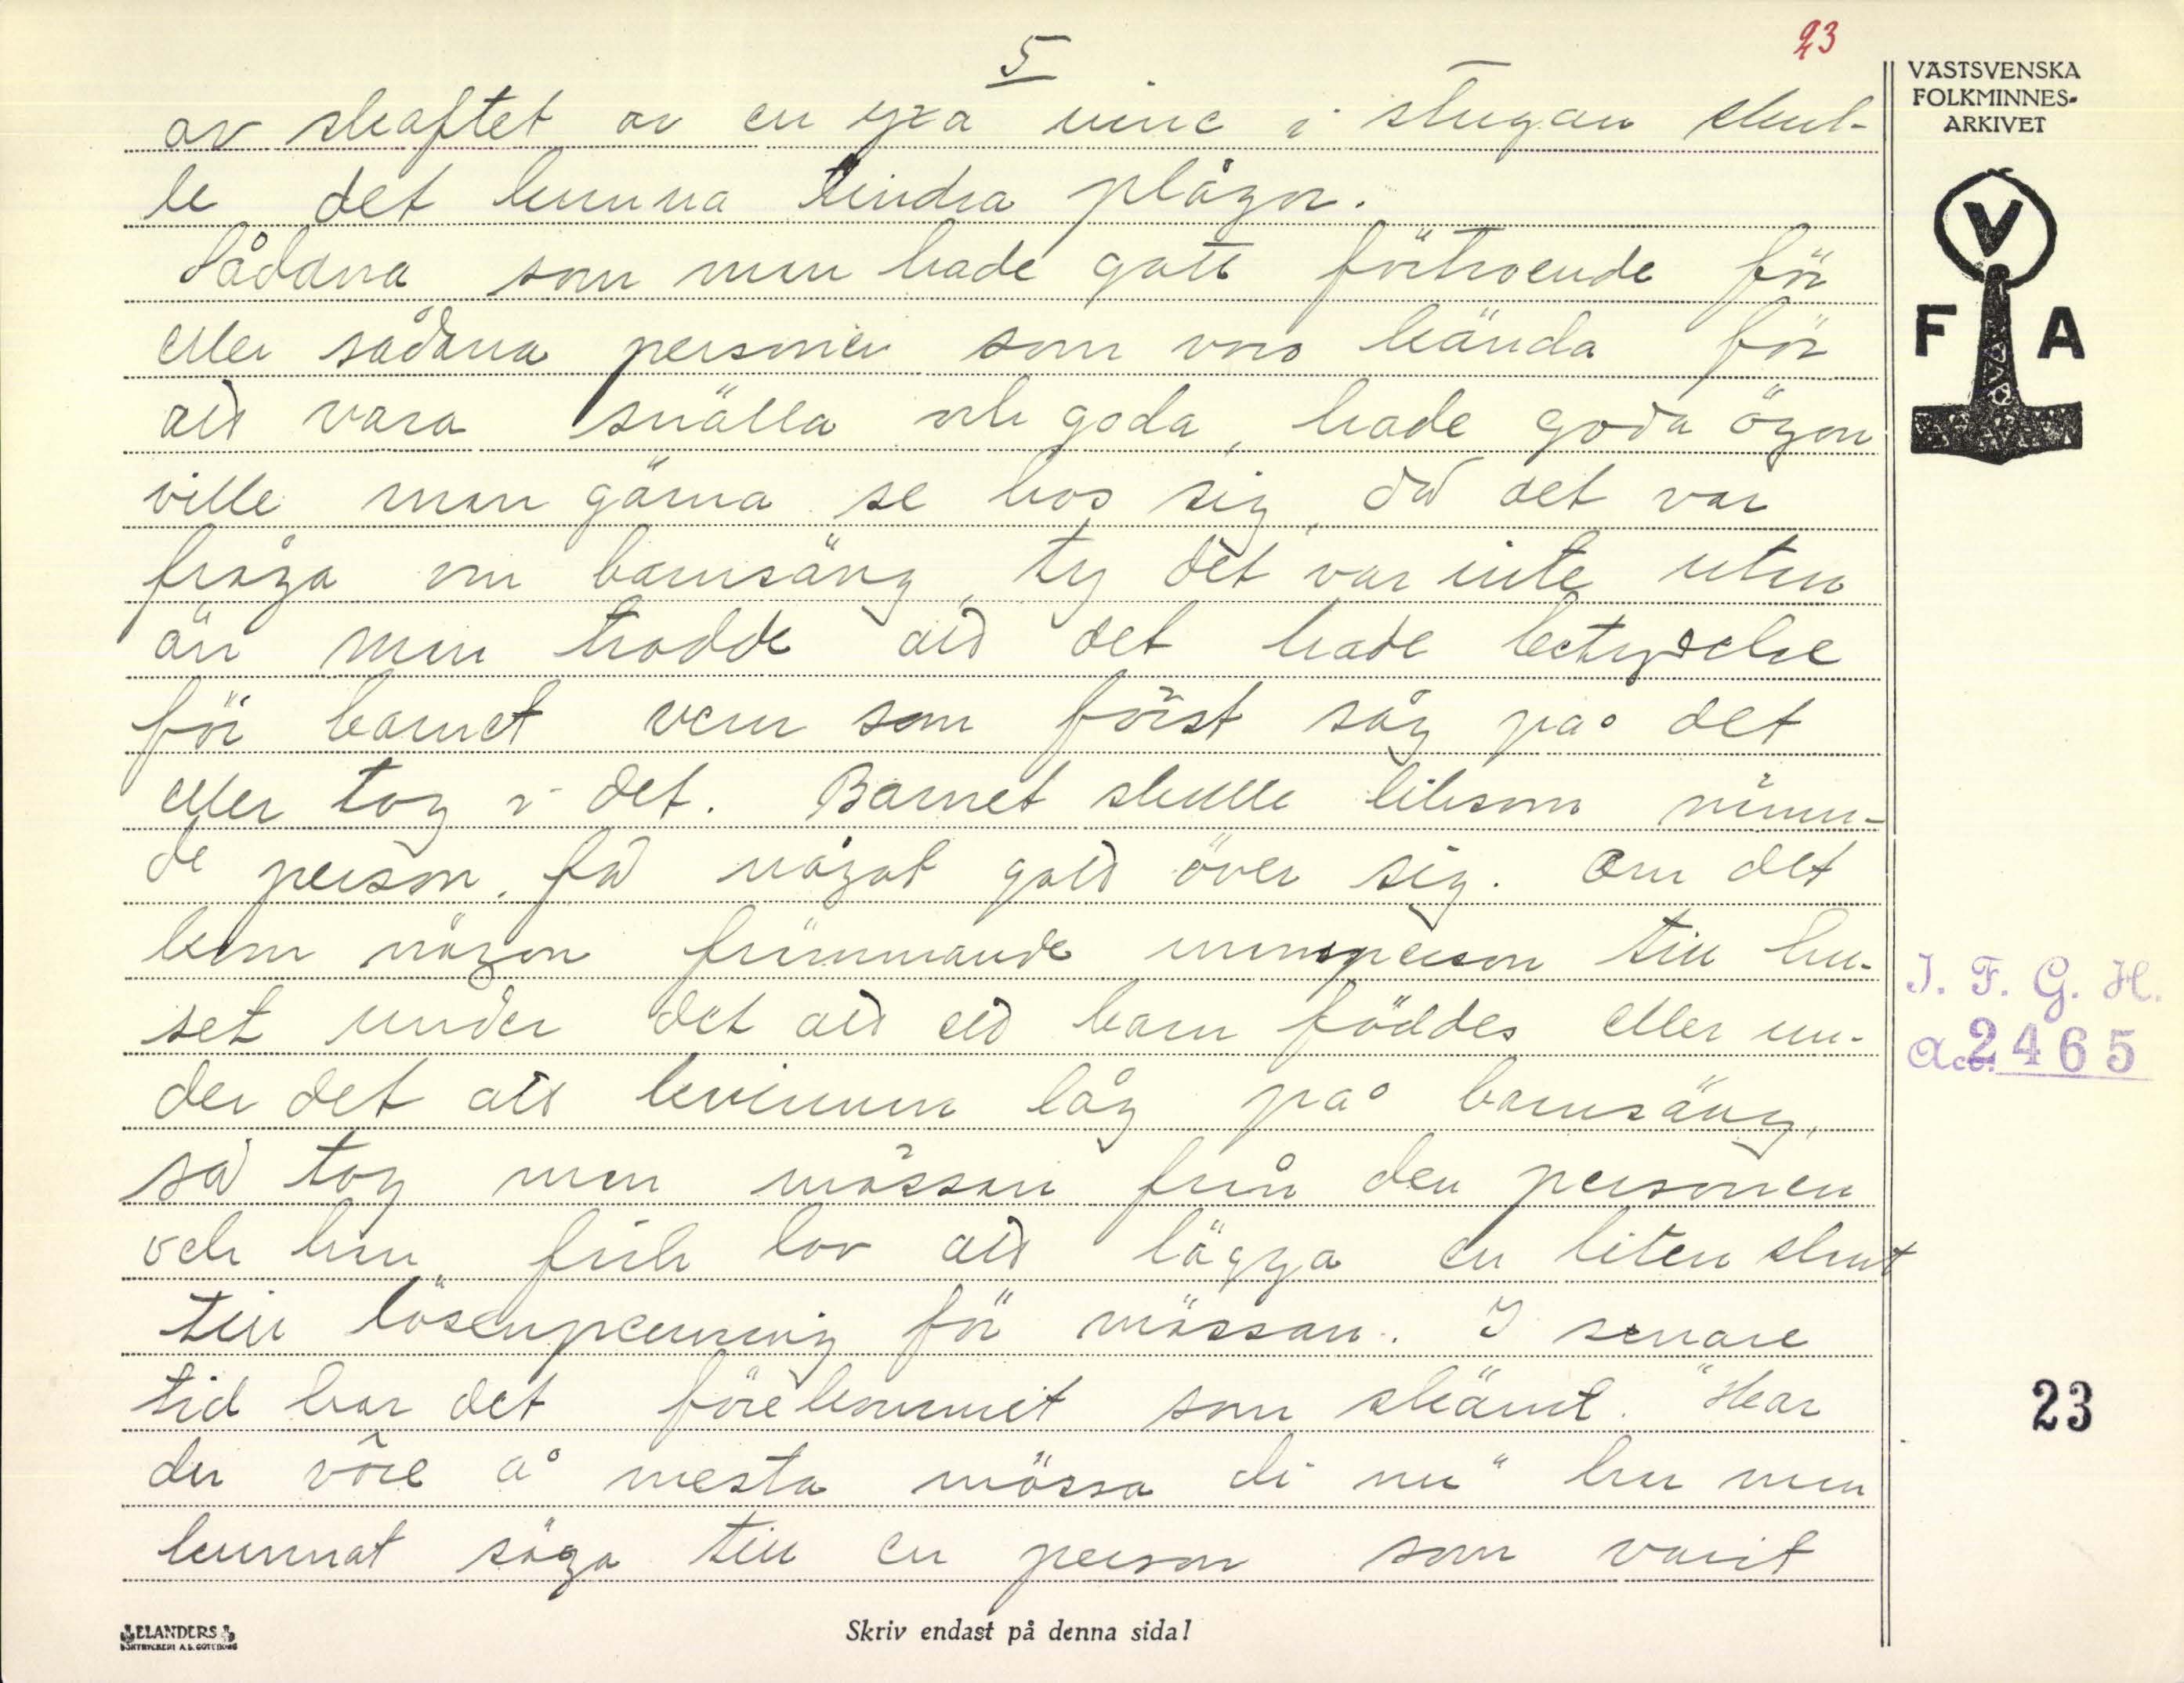 5
23
av skaftet av en yxa inne i stugan skul-
le det kunna lindra plågor.
Sådana som man hade gott förtroende för
eller sådana personer som voro kända för
att vara snälla och goda, hade goda ögon
ville man gärna se hos sig, då det var
fråga om barnsäng, ty det var inte utan
än man trodde att det hade betydelse
för barnet vem som först såg på det
eller tog i det. Barnet skulle liksom nämn-
de person, få något gott över sig. Om det
kom någon främmande mansperson till hu-
set under det att ett barn föddes eller un-
der det att kvinnan låg på barnsäng,
så tog man mössan från den personen
och han fick lov att lägga en liten slant
till lösenpenning för mössan. I senare
tid har det förekommit som skämt. "Har
du vôre å mesta mössa di nu" har man
kunnat säga till en person som varit
VÄSTSVENSKA
FOLKMINNES-
ARKIVET
V
F A
I. F. G. H.
Acc. 2465
23
ELANDERS
BOKTRYCKERI A.B. GÖTEBORG
Skriv endast på denna sida!